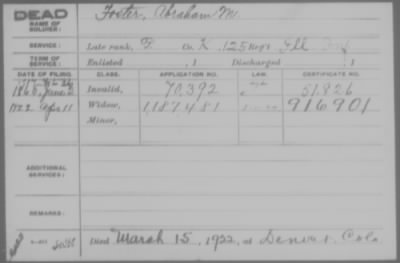 DEAD
NAME OF SOLDIER: Foster, Abraham M.
SERVICE: Late rank, P. Co. K, 125 Reg't Ill Inf
TERM OF SERVICE: Enlisted , 1 Discharged , 1
DATE OF FILING. CLASS. APPLICATION NO. LAW. CERTIFICATE NO.
1865, June Invalid, 70.392 51.826
1922 Apr 11 Widow, 1,187,481 916901
Minor,
ADDITIONAL SERVICES:
REMARKS:
Died March 15, 1922, at Denver, Colo